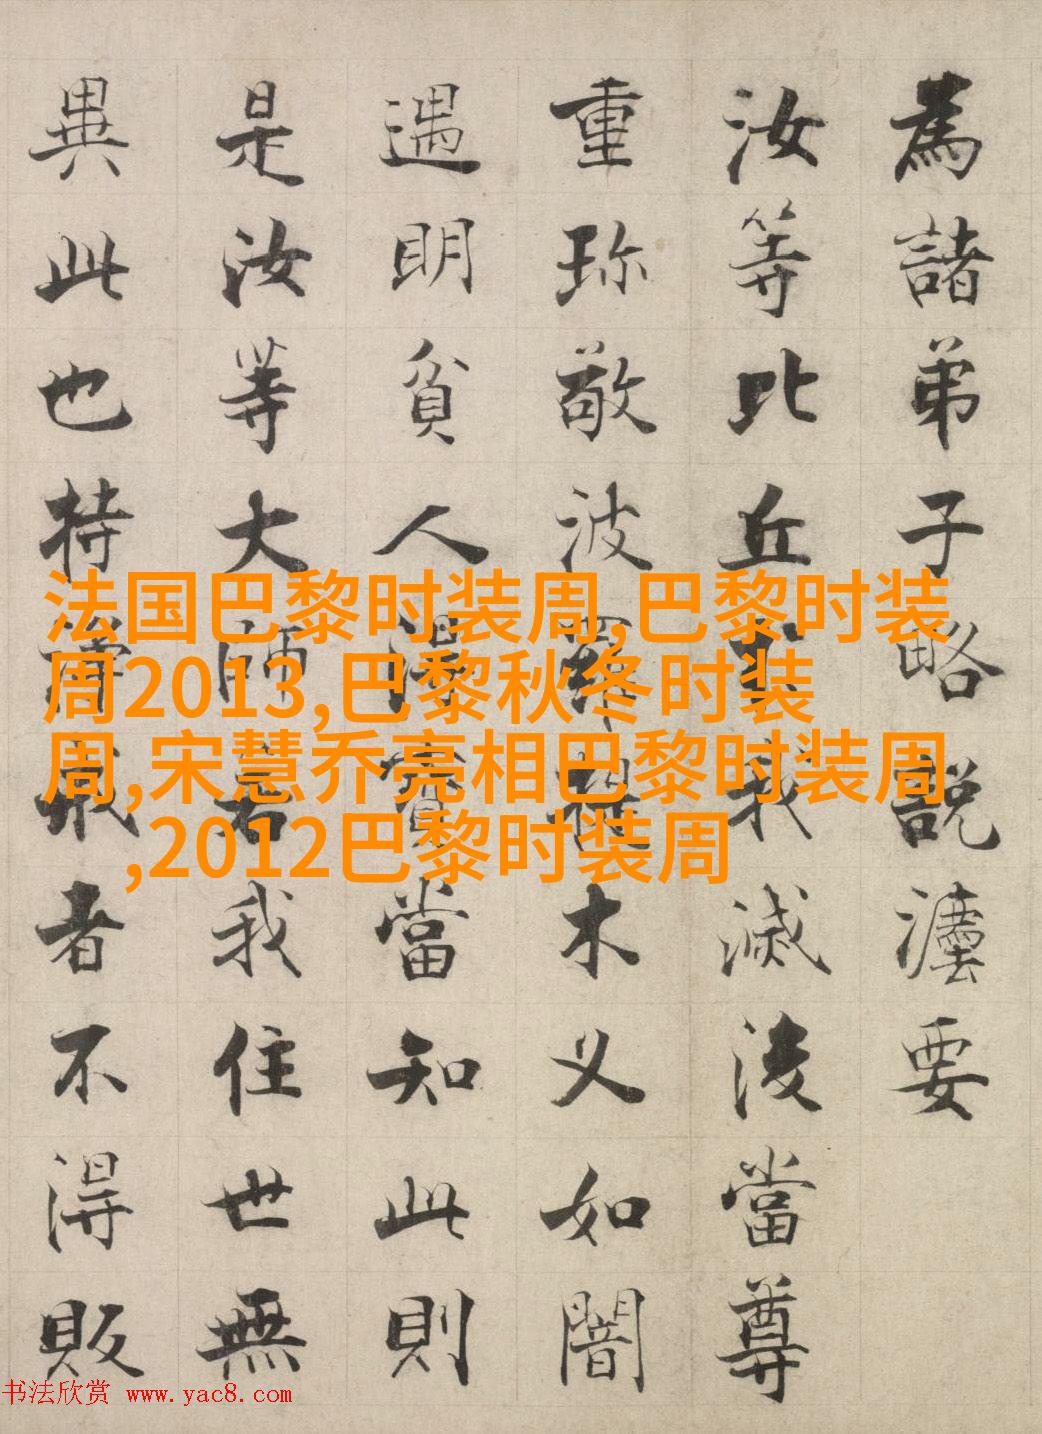 為諸弟子略説灋要
汝等比丘於我滅後當尊
重珎敬波羅提木义如闇
遇明貧人得寶當知此則
是汝等大師若我住世無
異此也持淨戒者不得販
法国巴黎时装周,巴黎时装
周2013,巴黎秋冬时装
周,宋慧乔亮相巴黎时装周
,2012巴黎时装周
书法欣赏 www.yac8.com